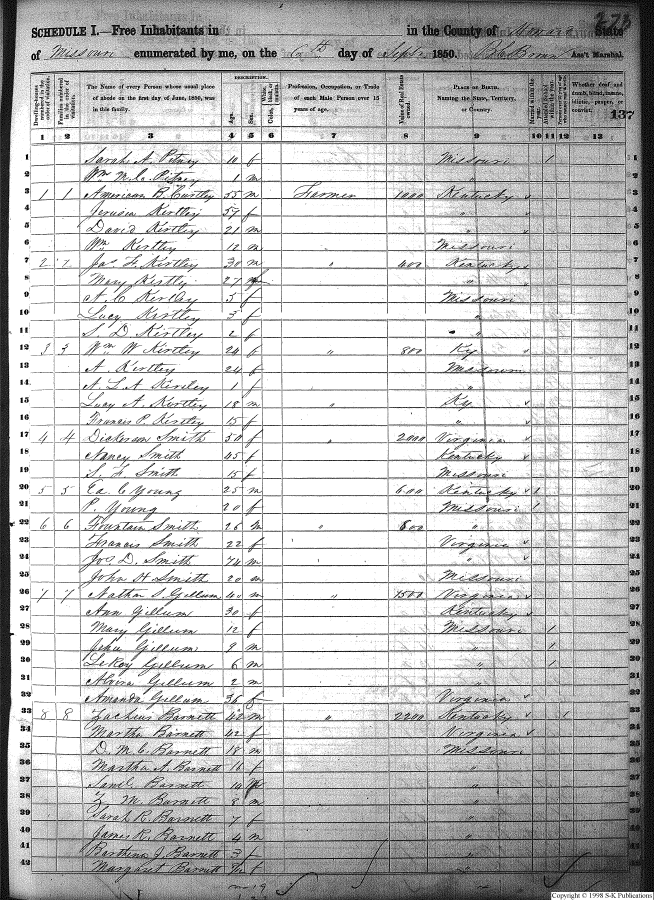 273
SCHEDULE I.—Free Inhabitants in in the County of Howard State
of Missouri enumerated by me, on the day of Sept 1850. Ass't Marshal.
137
DESCRIPTION.
Dwelling-houses numbered in the order of visitation.
Families numbered in the order of visitation.
The Name of every Person whose usual place of abode on the first day of June, 1850, was in this family.
Age.
Sex.
Color, White, black, or mulatto.
Profession, Occupation, or Trade of each Male Person over 15 years of age.
Value of Real Estate owned.
PLACE OF BIRTH. Naming the State, Territory, or Country.
Married within the year.
Whether deaf and dumb, blind, insane, idiotic, pauper, or convict.
1 2 3 4 5 6 7 8 9 10 11 12 13
1 Sarah A. Pitney 10 f Missouri 1 1
2 Wm M. C. Pitney 1 m " 2
3 1 1 American B. Curtley 55 m Farmer 1000 Kentucky 3
4 Jerusia Kirtley 57 f " 4
5 David Kirtley 21 m " 5
6 Wm Kirtley 12 m Missouri 6
7 2 2 Jas F. Kirtley 30 m " 400 Kentucky 7
8 Mary Kirtly 27 f " 8
9 A. C Kirtley 5 f Missouri 9
10 Lucy Kirtley 3 f " 10
11 S. D Kirtley 2 f " 11
12 3 3 Wm W Kirtley 24 f " 800 Ky 12
13 A Kirtley 24 f Missouri 13
14 A. L. A Kirtley 1 f " 14
15 Lucy A. Kirtley 18 m " Ky 15
16 Francis P. Kirtley 15 f " 16
17 4 4 Dickerson Smith 50 f " 2000 Virginia 17
18 Nancy Smith 45 f Kentucky 18
19 S. F Smith 15 f Missouri 19
20 5 5 Ed. C Young 25 m 600 Kentucky 1 20
21 P. Young 20 f Missouri 1 21
22 6 6 Fountain Smith 26 m " 800 " 22
23 Francis Smith 22 f Virginia 23
24 Jos D. Smith 74 m " 24
25 John H Smith 20 m Missouri 25
26 7 7 Nathan S. Gillum 40 m " 1500 Virginia 26
27 Ann Gillum 30 f Kentucky 27
28 Mary Gillum 12 f Missouri 1 28
29 John Gillum 9 m " 1 29
30 LeRoy Gillum 6 m " 1 30
31 Alvira Gillum 2 m " 31
32 Amanda Gillum 36 f Virginia 32
33 8 8 Zacheus Barnett 42 m " 2200 Kentucky 1 33
34 Martha Barnett 42 f Virginia 34
35 D. M. C. Barnett 18 m Missouri 35
36 Martha A. Barnett 16 f " 36
37 Saml. Barnett 10 " 37
38 Z. M. Barnett 8 m " 38
39 Sarah R. Barnett 7 f " 39
40 James R. Barnett 4 m " 40
41 Barthina J. Barnett 3 f " 41
42 Margaret Barnett f " 42
m 19
Copyright © 1998 S-K Publications